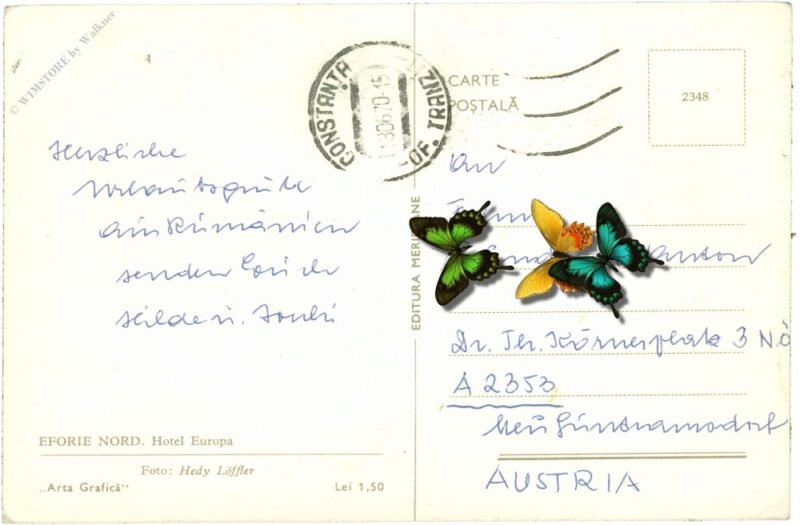 © WIMSTORE by Walkner
CONSTANȚA
OF. TRANZ
CARTE
POȘTALĂ
2348
Herzliche
Urlaubsgrüße
aus Rumänien
senden Euch
Hilde u.
An
Dr. Th. Körnerplatz 3 NÖ
A 2353
AUSTRIA
EDITURA
EFORIE NORD. Hotel Europa
Foto: Hedy Löffler
„Arta Grafică"
Lei 1,50